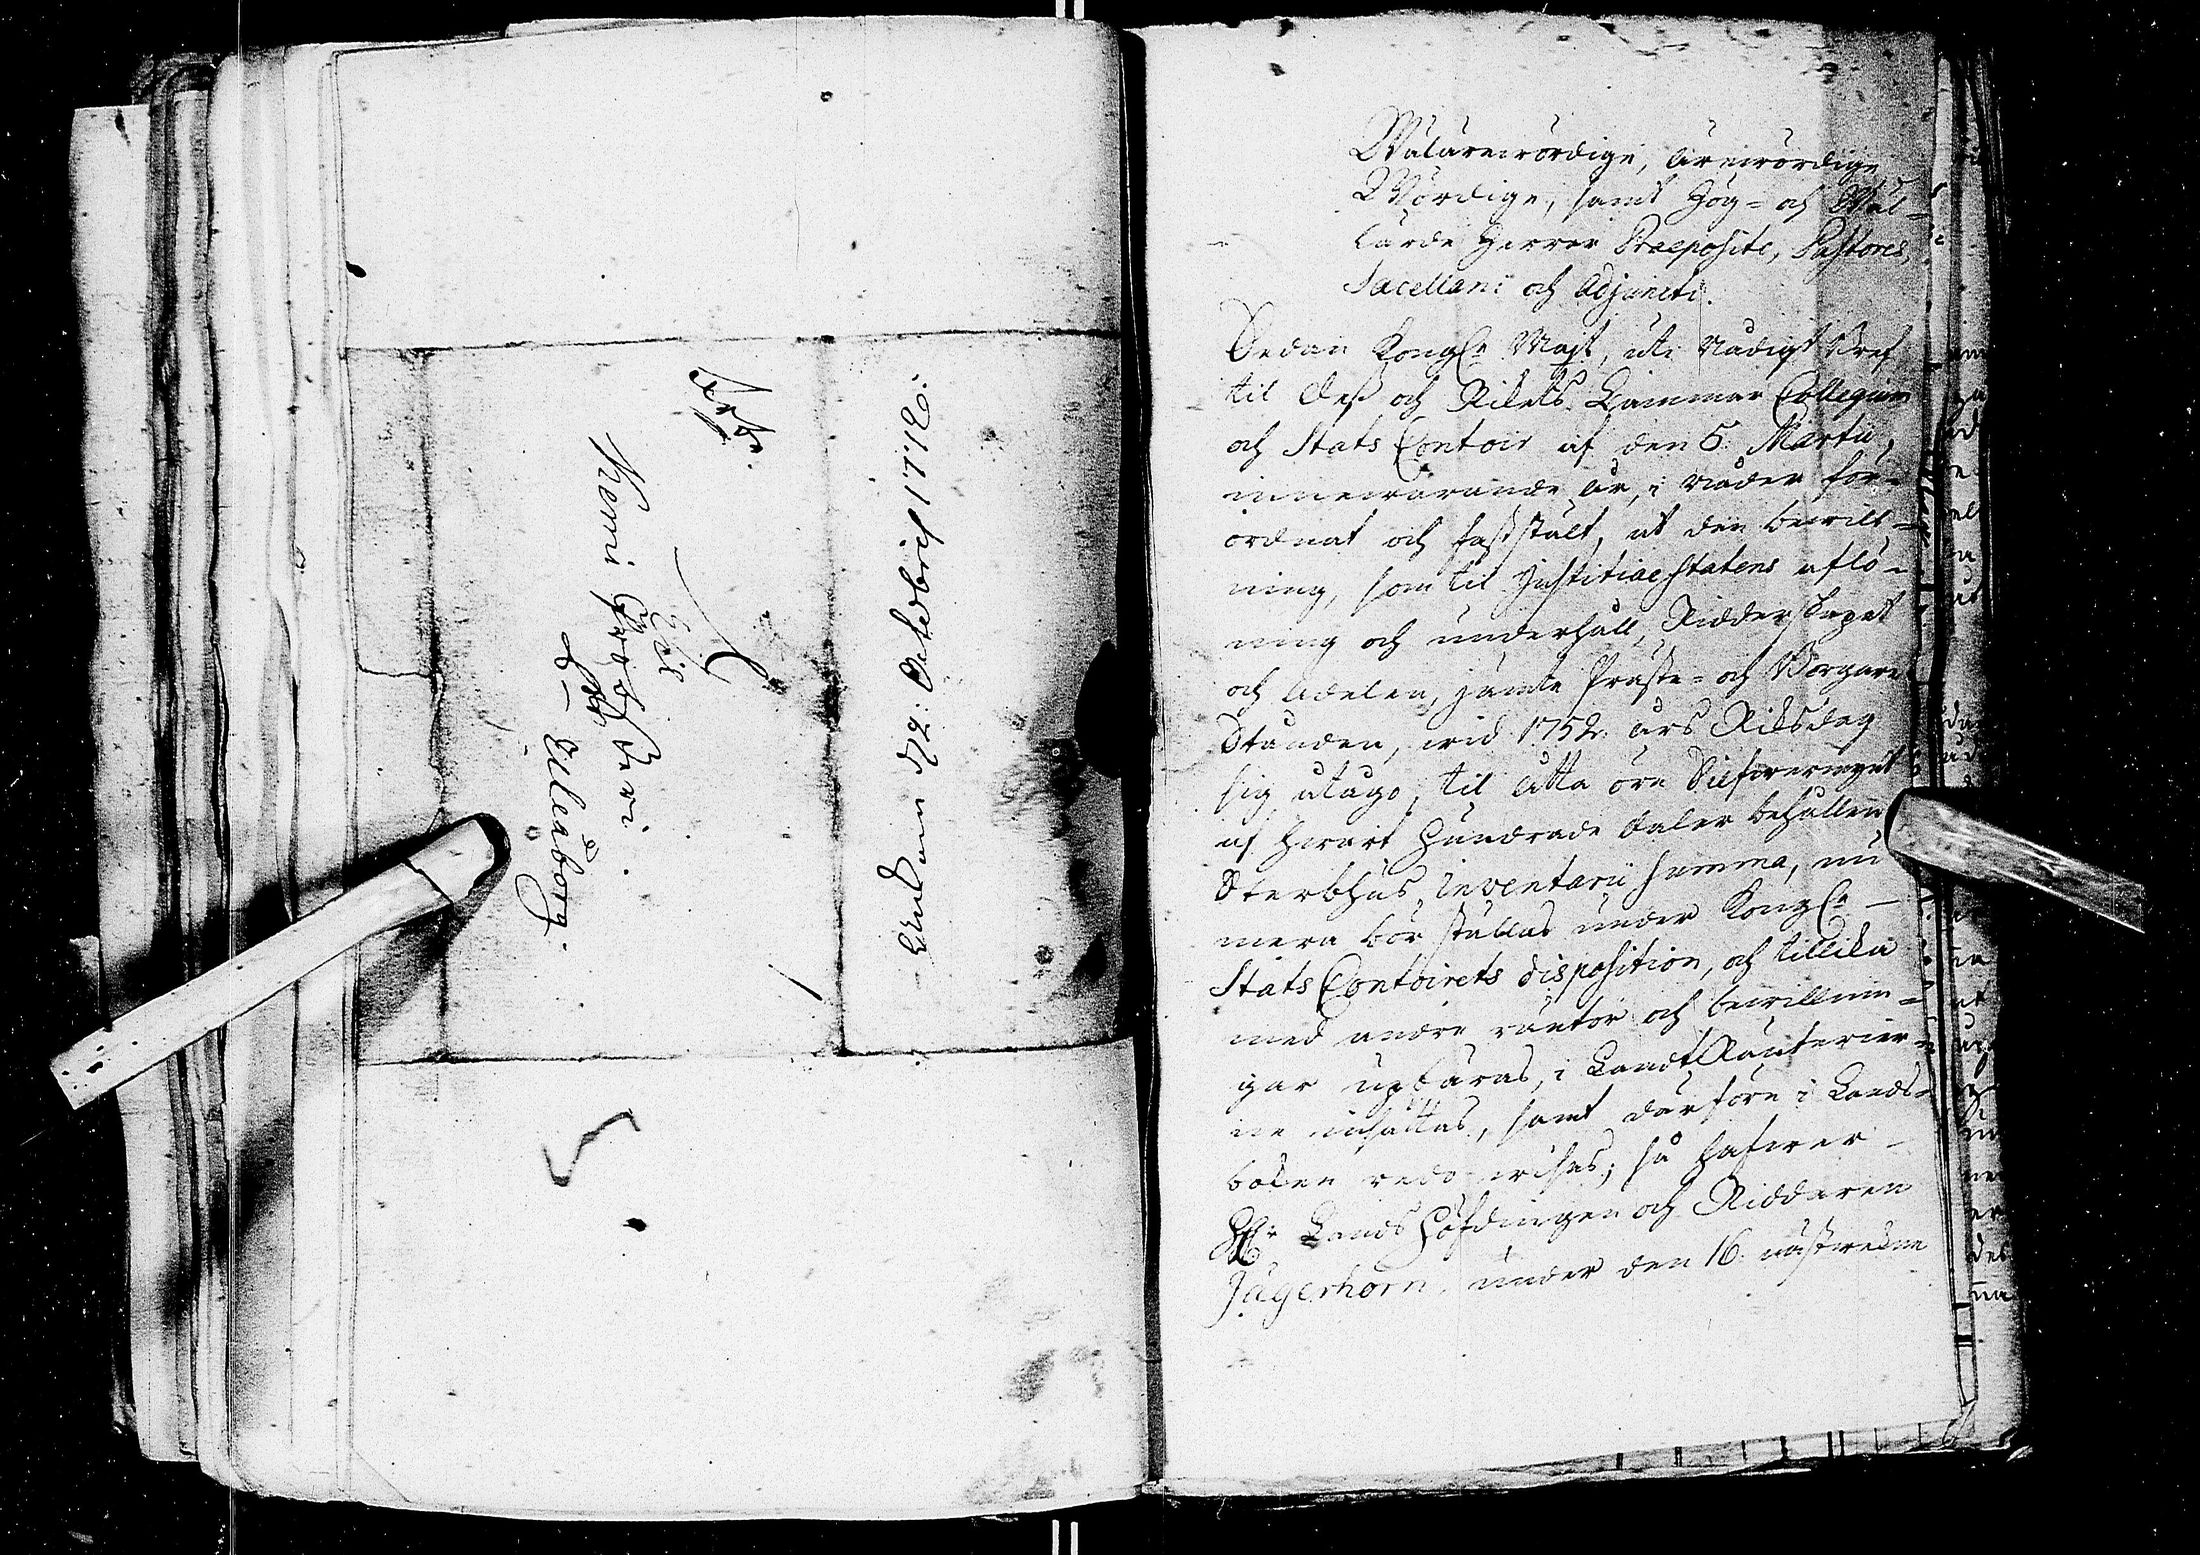 Bref.
Til
Kemi Probst Veri
p. Uleåborg.
d 12: Octobris 1776:
Wälärewördige, ärewördige
Wördige, samt Hög- och Wäl-
lärde Herrar Præpositi, Pastores,
Sacellani och Adjuncti.
Sedan Kongl. Majt, uti Nådigt Bref
til dess och Rikets Cammar Collegium
och Stats Contoir af den 5. Martii,
innewarande år, i nåder för-
ordnat och fastställt, at den bewill-
ning, som til Justitiae Statens aflö-
ning och underhåll, Ridderskapet
och Adelen, jämte Präste- och Borgare
Stånden, wid 1752. års Riksdag
sig åtago, til åtta öre Silfwermynt
af hwart Hundrade daler behållen
Sterbhus Inventarii Summa, nu
mera bör ställas under Kongl.
Stats Contoirets disposition, och tillika
med andre räntor och bewillnin-
gar upbäras, i LandtRänterier-
ne insättas, samt därföre i Lands-
boken redo wisas; så hafwer
Hr LandsHöfdingen och Riddaren
Jägerhorn, under den 16. nästwekne